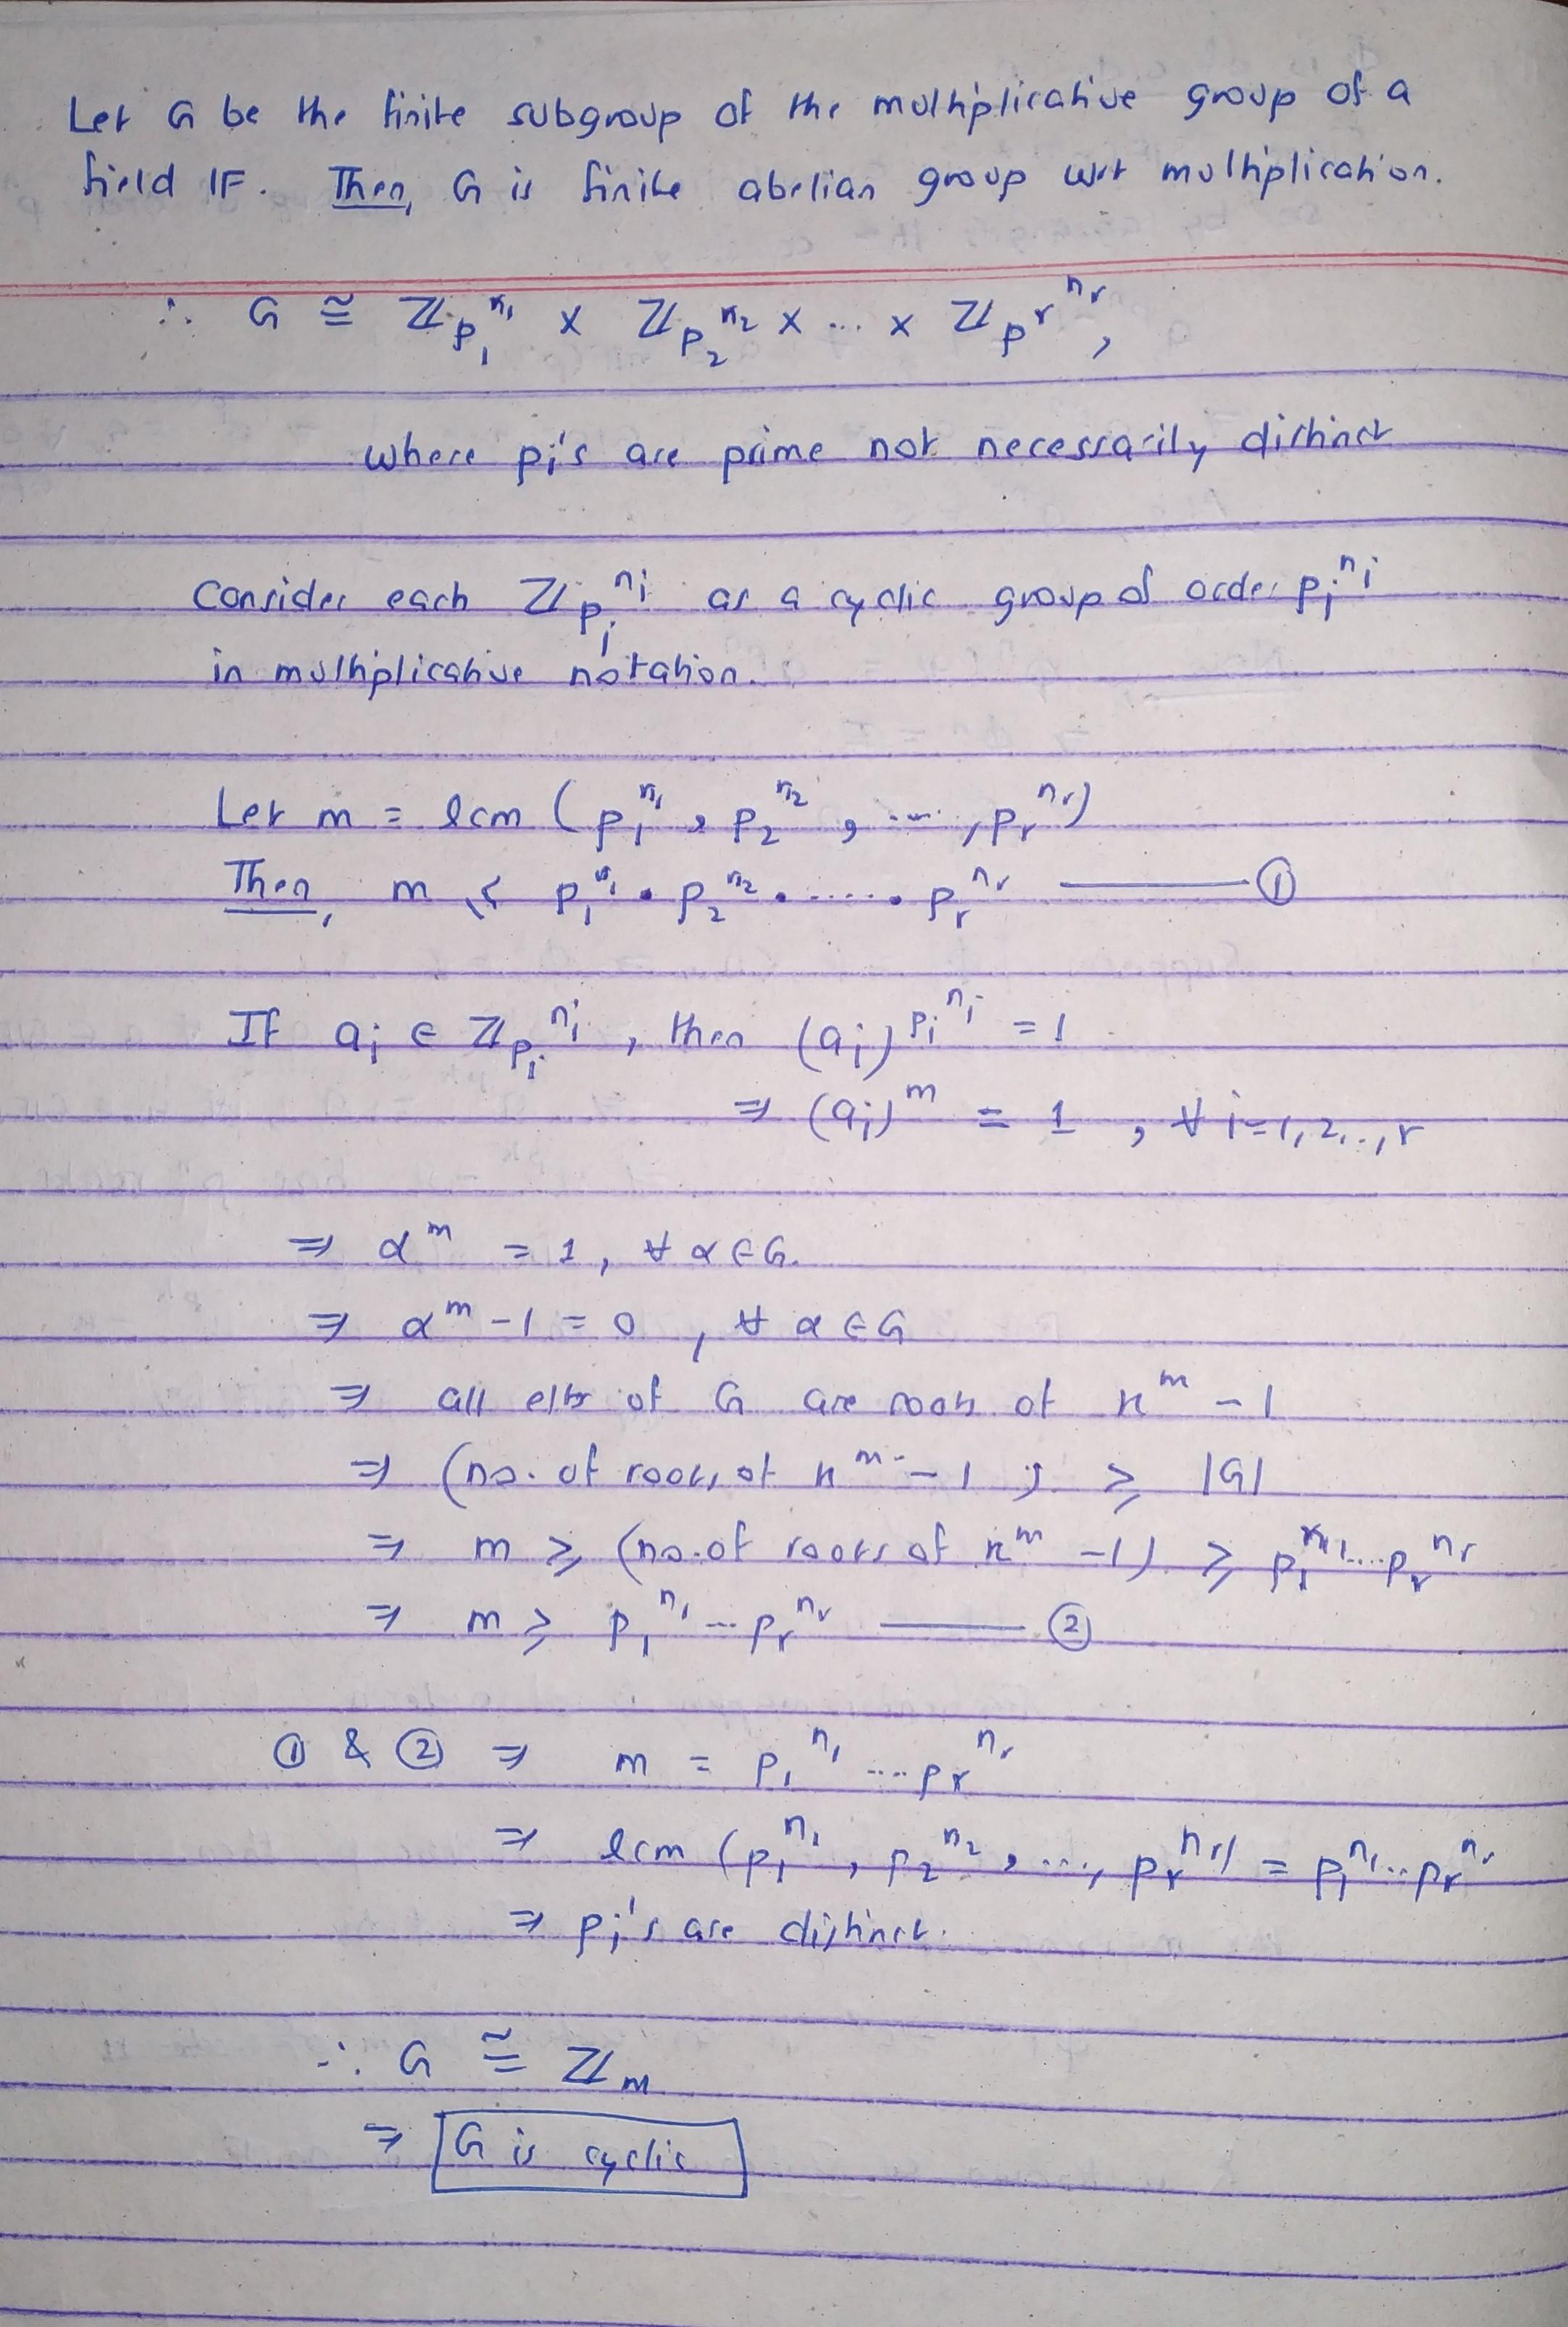 Let G be the finite subgroup of the multiplicative group of a
field IF. Then, G is finite abelian group wrt multiplication.
∴ G ≅ ℤ_{p₁^{n₁}} × ℤ_{p₂^{n₂}} × ... × ℤ_{p^{r^{n_r}}},
where pᵢ's are prime not necessarily distinct
Consider each ℤ_{pᵢ^{nᵢ}} as a cyclic group of order pᵢ^{nᵢ}
in multiplicative notation.
Let m = lcm (p₁^{n₁}, p₂^{n₂}, ...., p_r^{n_r})
Then, m ≤ p₁^{n₁} • p₂^{n₂} • ...... • p_r^{n_r} ——— ①
If aᵢ ∈ ℤ_{pᵢ^{nᵢ}}, then (aᵢ)^{pᵢ^{nᵢ}} = 1
⇒ (aᵢ)^m = 1, ∀ i=1,2,..,r
⇒ α^m = 1, ∀ α ∈ G.
⇒ α^m - 1 = 0, ∀ α ∈ G
⇒ all elts of G are roots of x^m - 1
⇒ (no. of roots of x^m - 1) ≥ |G|
⇒ m ≥ (no. of roots of x^m - 1) ≥ p₁^{n₁}....p_r^{n_r}
⇒ m ≥ p₁^{n₁} ... p_r^{n_r} ——— ②
① & ② ⇒ m = p₁^{n₁} .... p_r^{n_r}
⇒ lcm (p₁^{n₁}, p₂^{n₂}, ..., p_r^{n_r}) = p₁^{n₁}...p_r^{n_r}
⇒ pᵢ's are distinct.
∴ G ≅ ℤ_m
⇒ G is cyclic